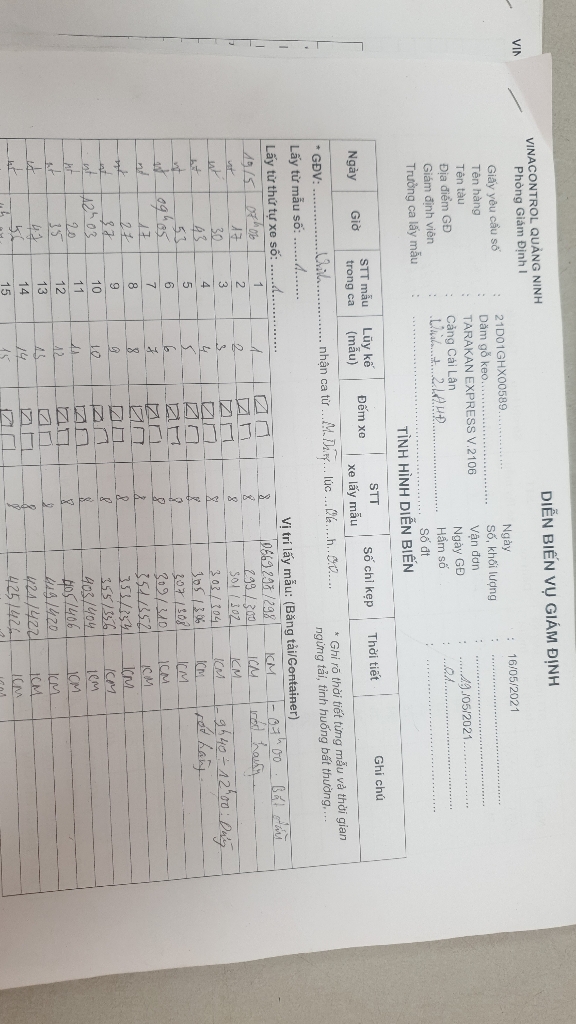 VIN
VINACONTROL QUẢNG NINH
Phòng Giám Định I
DIỄN BIẾN VỤ GIÁM ĐỊNH
Giấy yêu cầu số : 21D01GHX00589
Ngày : 16/05/2021
Tên hàng : Dăm gỗ keo
Số, khối lượng :
Tên tàu : TARAKAN EXPRESS V.2106
Vận đơn :
Địa điểm GĐ : Cảng Cái Lân
Ngày GĐ : 19/05/2021
Giám định viên :
Hầm số : 01
Trưởng ca lấy mẫu :
Số đt :
TÌNH HÌNH DIỄN BIẾN
Ngày Giờ STT mẫu trong ca Lũy kế (mẫu) Đếm xe STT xe lấy mẫu Số chì kẹp Thời tiết Ghi chú
* GĐV: nhận ca từ lúc h
* Ghi rõ thời tiết từng mẫu và thời gian ngừng tải, tình huống bất thường,...
Lấy từ mẫu số: 1
Lấy từ thứ tự xe số: 1
Vị trí lấy mẫu: (Băng tải/Container)
19/5 07h06 1 1 8 297/298 KM - 07h00. Bắt đầu
nt 17 2 2 8 299/300 KM
nt 30 3 3 8 301/302 KM
nt 43 4 4 8 303/304 KM - 9h40 - 12h00:
nt 53 5 5 8 305/306 KM
nt 09h05 6 6 8 307/308 KM
nt 17 7 7 8 309/310 KM
nt 27 8 8 8 351/352 KM
nt 37 9 9 8 353/354 KM
nt 10 10 8 355/356 KM
nt 12h03 11 11 8 403/404 KM
nt 20 12 12 8 405/406 KM
nt 35 13 13 8 419/420 KM
nt 47 14 14 8 421/422 KM
nt 15 15 8 425/426 KM